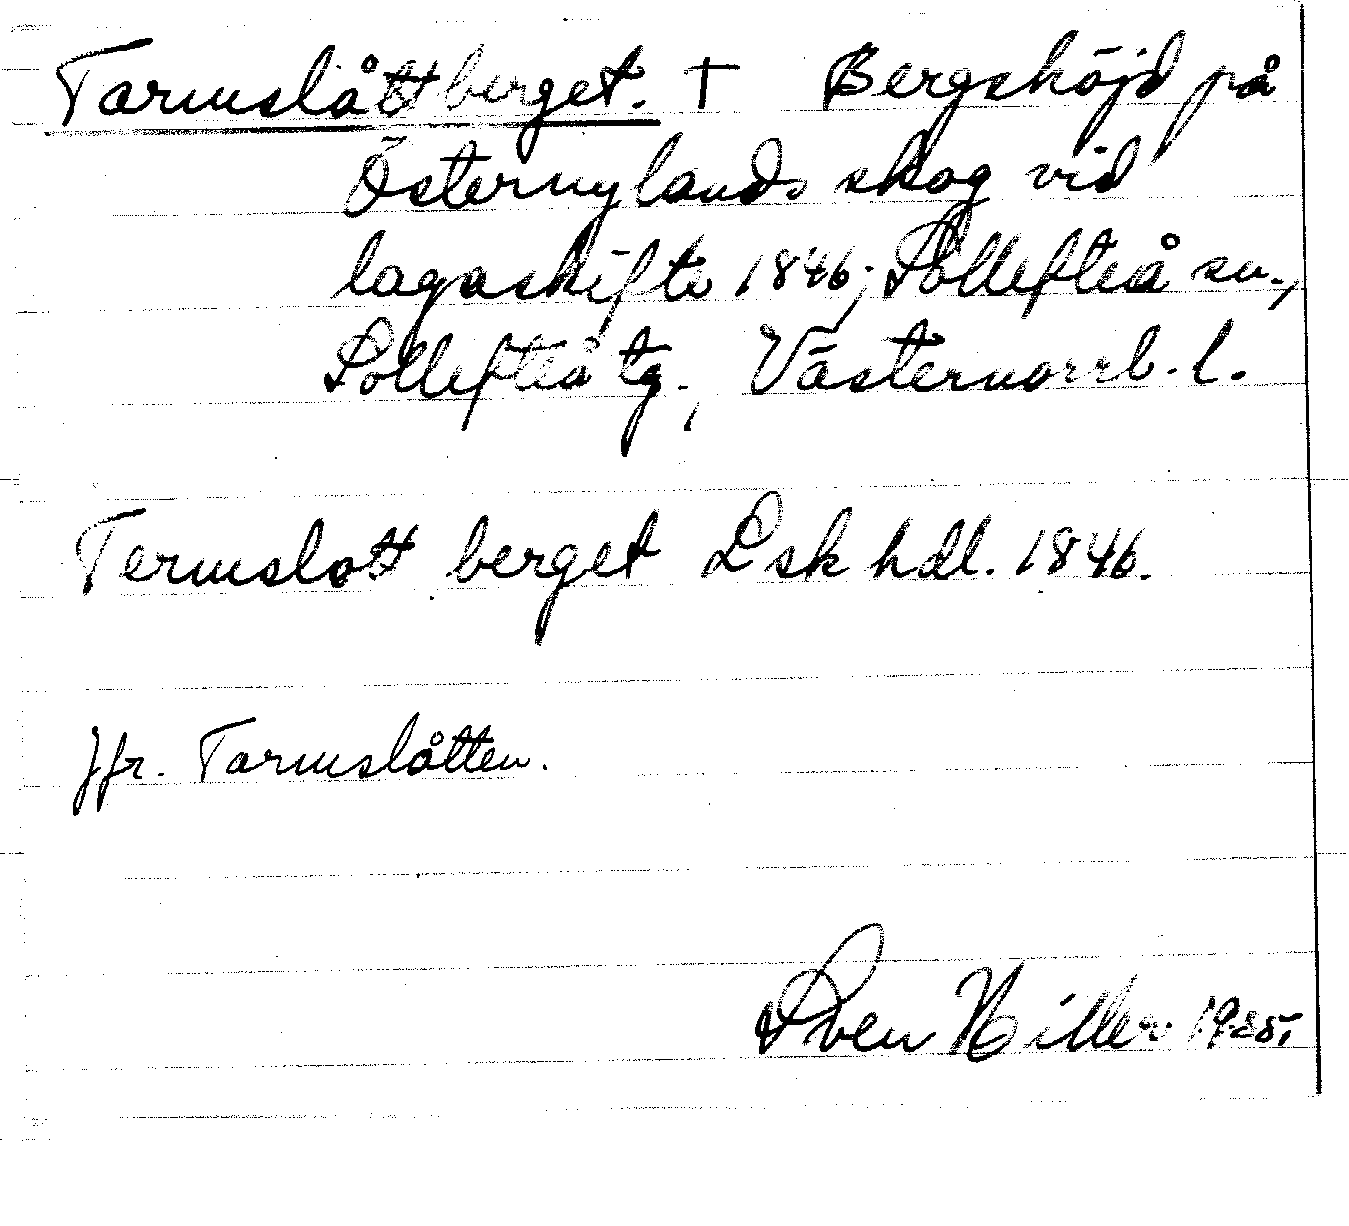 Tarmslåttberget. † Bergshöjd på
Östernylands skog vid
lagaskifte 1846; Sollefteå sn.,
Sollefteå tg., Västernorrl. l.
Termslott berget Lsk hdl. 1846.
Jfr. Tarmslåtten.
Sven Hiller 1985.